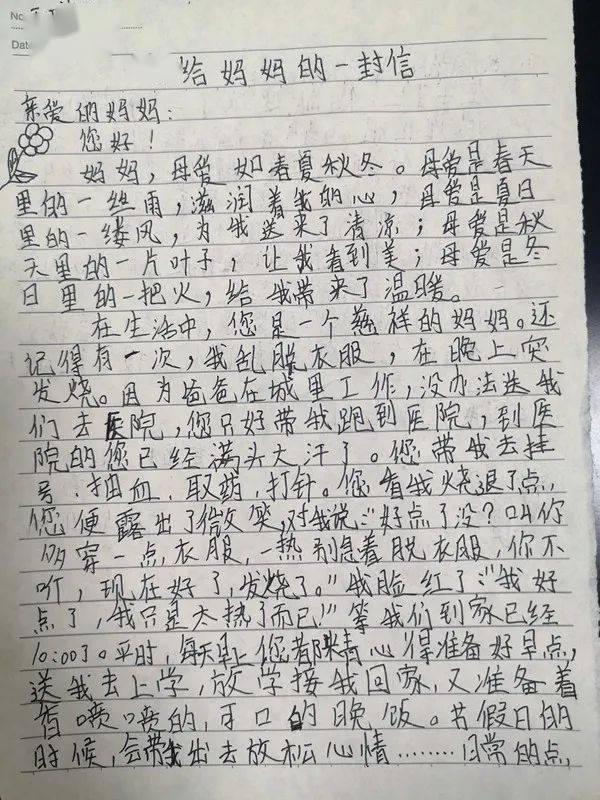 No.
Dat
给妈妈的一封信
亲爱的妈妈：
您好！
妈妈，母爱如春夏秋冬。母爱是春天
里的一丝雨，滋润着我的心，母爱是夏日
里的一缕风，为我送来了清凉；母爱是秋
天里的一片叶子，让我看到美；母爱是冬
日里的一把火，给我带来了温暖。
在生活中，您是一个慈祥的妈妈。还
记得有一次，我乱脱衣服，在晚上突
发烧。因为爸爸在城里工作，没办法送我
们去医院，您只好带我跑到医院，到医
院的您已经满头大汗了。您带我去挂
号、抽血、取药、打针。您看我烧退了点，
您便露出了微笑，对我说：“好点了没？叫你
多穿一点衣服，一热别急着脱衣服，你不
听，现在好了，发烧了。”我脸红了：“我好
点了，我只是太热了而已”等我们到家已经
10:00了。平时，每天早上您都精心得准备好早点，
送我去上学，放学接我回家，又准备着
香喷喷的，可口的晚饭。节假日的
时候，会带我出去放松心情………日常的点，